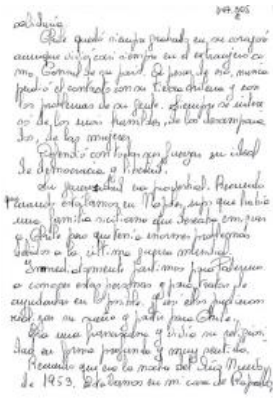 solidaria.
Chile quedó siempre grabado en su corazón
aunque vivió casi siempre en el extranjero co
mo Cónsul de su país. A pesar de eso, nunca
perdió el contacto con su tierra chilena y con
los problemas de su gente. Siempre se
de los más humildes, de los desampara
dos, de las mujeres.
Defendió con todas sus fuerzas su ideal
de democracia y libertad.
Su generosidad era proverbial. Recuerdo
cuando estábamos en Nápoles, supo que había
una familia italiana que deseaba emigrar
a Chile pero que tenía enormes problemas
debidos a la última guerra mundial.
Inmediatamente partimos para
a conocer estas personas y para tratar de
ayudarlas en lo posible. Y así ellos pudieron
realizar su sueño y partir para Chile.
Era una y vivió su
dad en forma profunda y muy sentida.
Recuerdo que era la noche del
de 1953. Estábamos en mi casa de Rapallo,